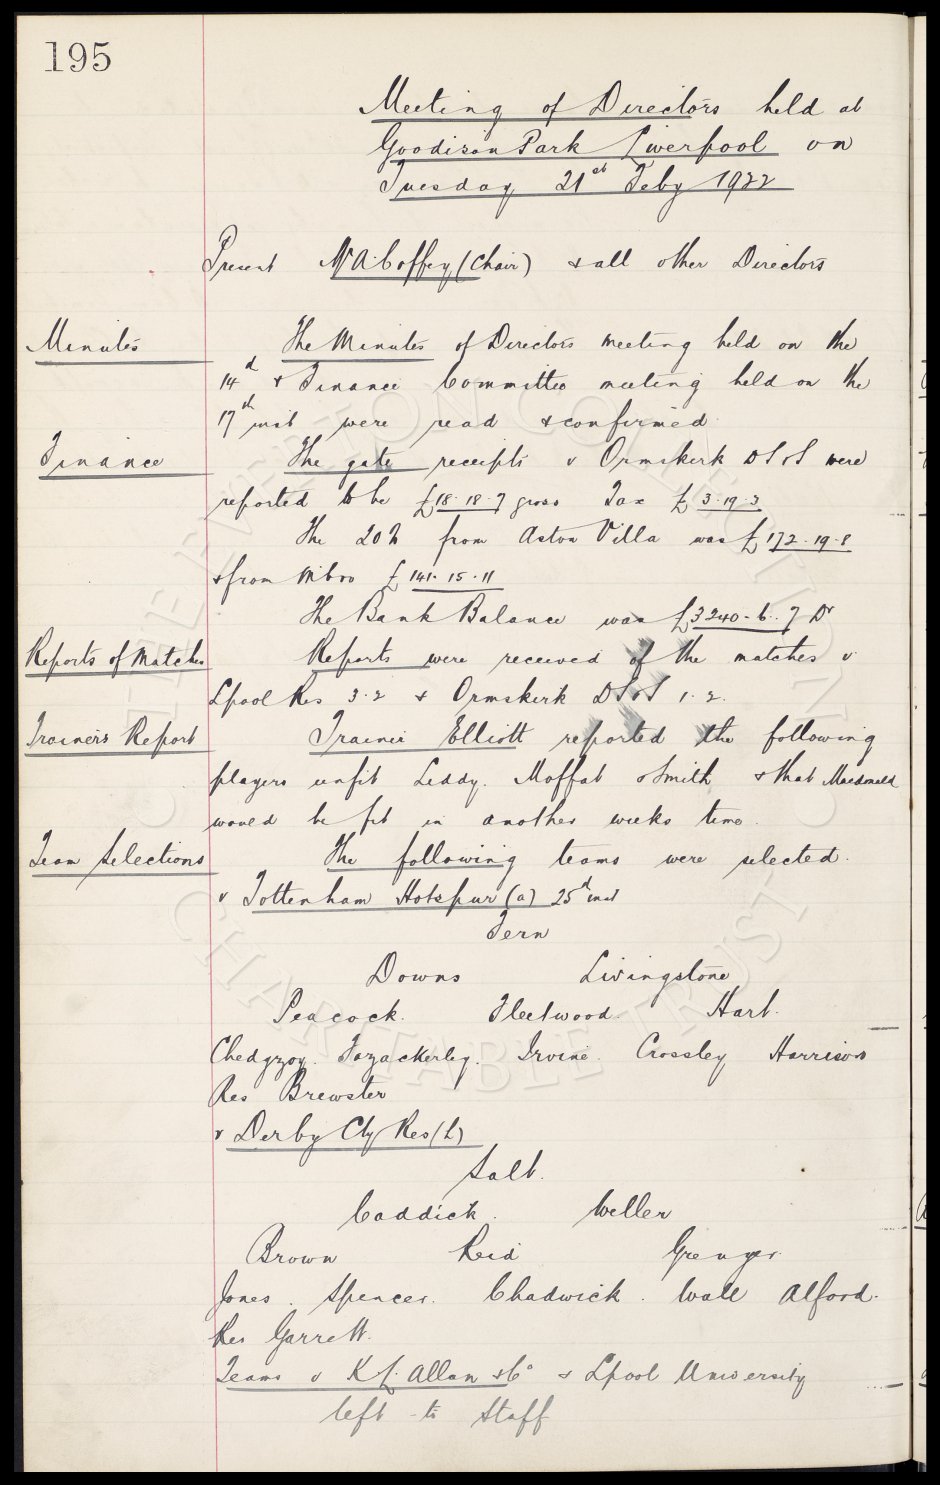 195
Meeting of Directors held at
Goodison Park Liverpool on
Tuesday 21st Feby 1922
Present Mr A. Coffey (Chair) & all other Directors
Minutes
The Minutes of Directors meeting held on the
14th & Finance Committee meeting held on the
17th inst were read & confirmed
Finance
The gate receipts v Ormskerk DS&S were
reported to be £18.18.7 gross Tax £3.19.3
The 20% from Aston Villa was £172.19.8
& from Mbro £141.15.11
The Bank Balance was £3240.6.7 Dr
Reports of Matches
Reports were received of the matches v
Lpool Res 3.2 & Ormskerk DS&S 1.2.
Trainers Report
Trainer Elliott reported the following
players unfit Leddy. Moffat & Smith & that Macdonald
would be fit in another weeks time.
Team Selections
The following teams were selected.
v Tottenham Hotspur (a) 25th inst
Fern
Downs Livingstone
Peacock. Fleetwood. Hart.
Chedgzoy. Fazackerley. Irvine. Crossley Harrison
Res Brewster
v Derby Cty Res (h)
Salt.
Caddick. Weller
Brown Reid Grenyer.
Jones. Spencer. Chadwick. Wall Alford.
Res Garrett.
Teams v K L. Allan & Co & Lpool University
left to Staff
THE EVERTON COLLECTION
CHARITABLE TRUST